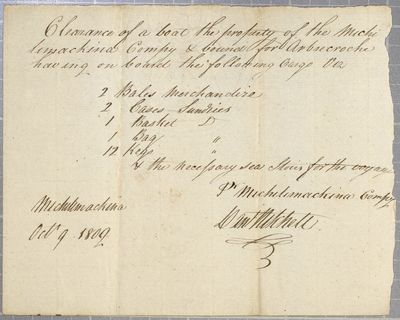 Clearance of a boat the property of the Michi
limachina Compy & bound for Arbrecroche
having on board the following Cargo Viz
2 Bales Merchandize
2 Cases Sundries
1 Basket Do
1 Bag "
12 Kegs "
& the necessary sea Stores for the voyage
Pr Michilimachina Compy
Michilimachina
Octr 9 1809